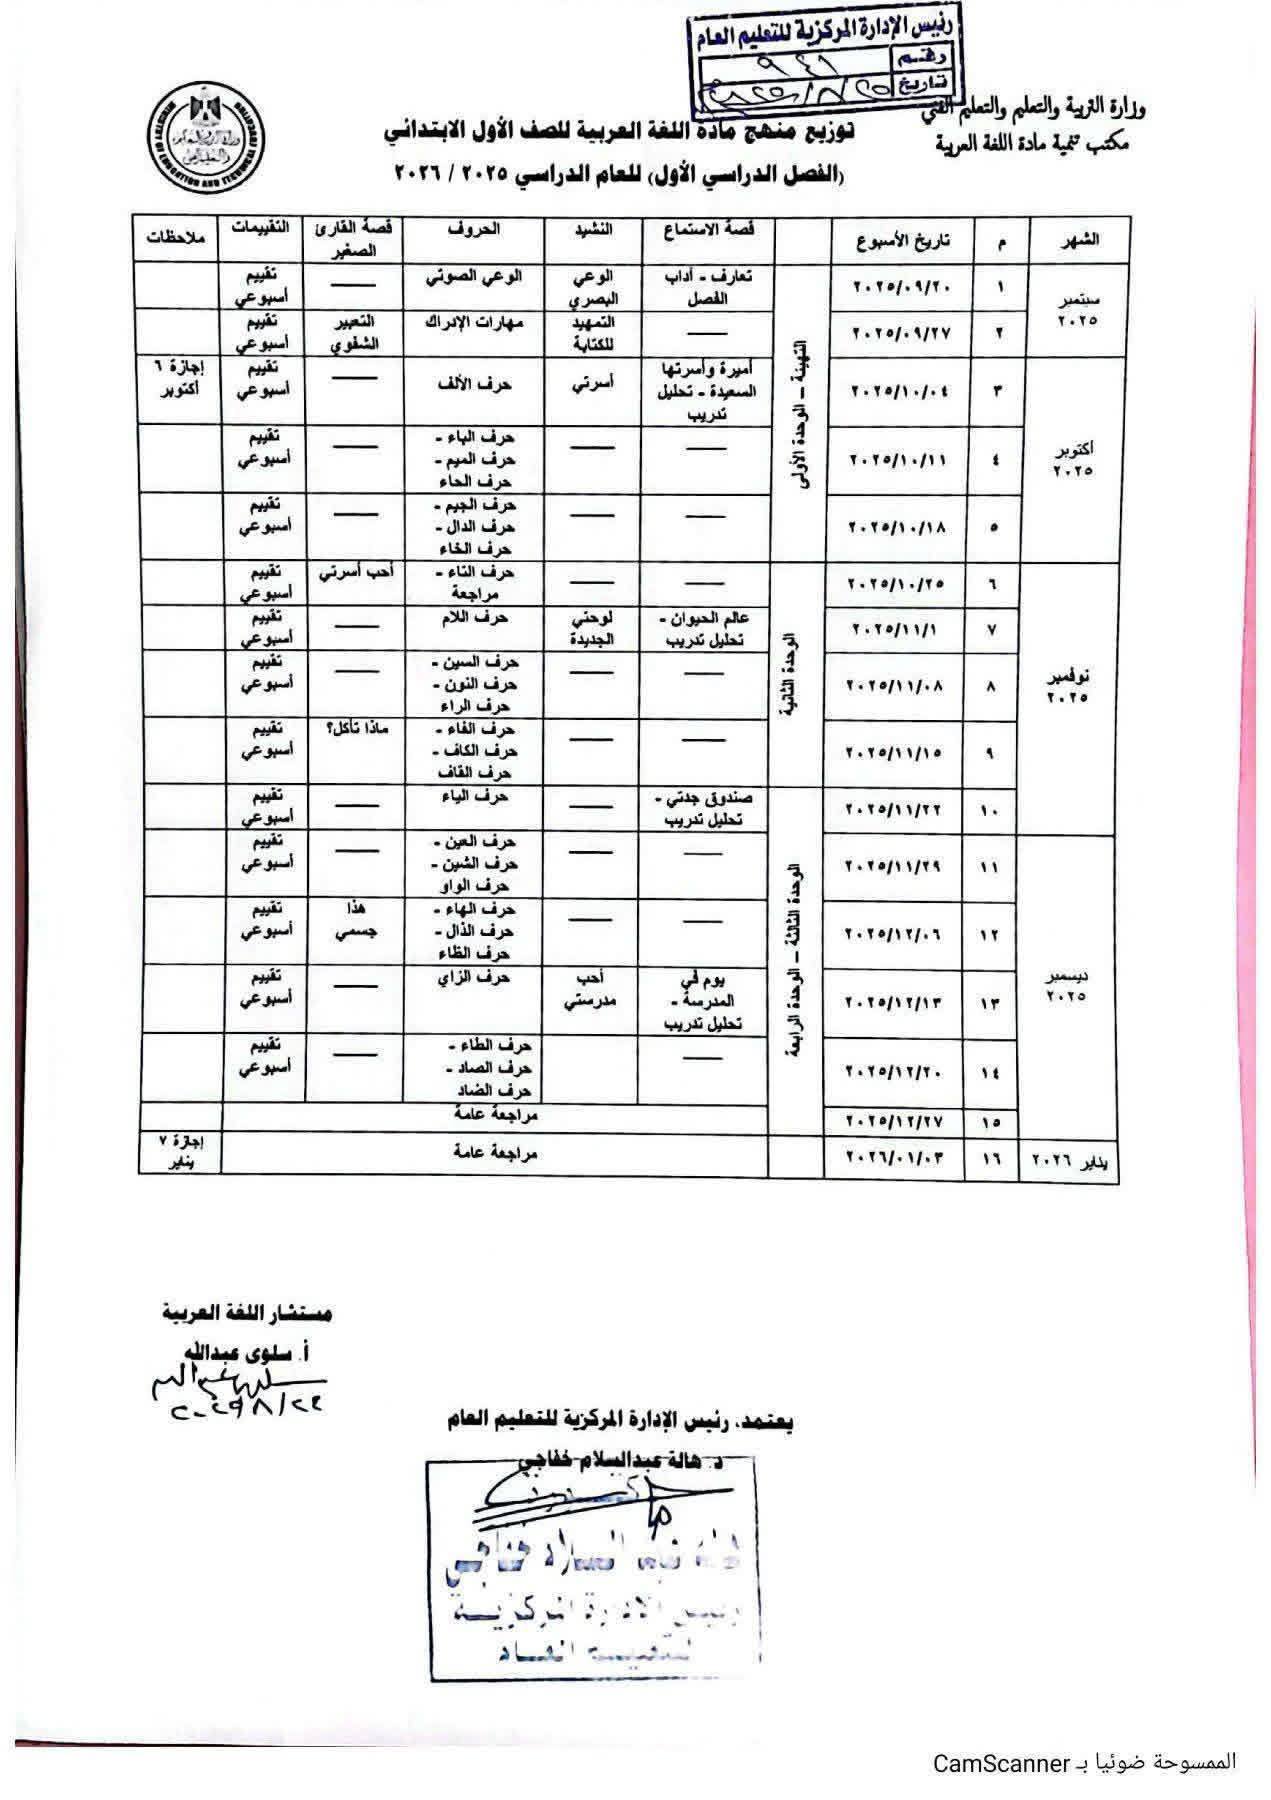 رئيس الإدارة المركزية للتعليم العام
رقم ٩٤١
تاريخ
وزارة التربية والتعليم والتعليم الفني
مكتب تنمية مادة اللغة العربية
توزيع منهج مادة اللغة العربية للصف الأول الابتدائي
(الفصل الدراسي الأول) للعام الدراسي ٢٠٢٥ / ٢٠٢٦
الشهر م تاريخ الأسبوع قصة الاستماع النشيد الحروف قصة القارئ الصغير التقييمات ملاحظات
سبتمبر ٢٠٢٥
التهيئة – الوحدة الأولى
١ ٢٠٢٥/٠٩/٢٠ تعارف - أداب الفصل الوعي البصري الوعي الصوتي —— تقييم أسبوعي
٢ ٢٠٢٥/٠٩/٢٧ —— التمهيد للكتابة مهارات الإدراك التعبير الشفوي تقييم أسبوعي
أكتوبر ٢٠٢٥
٣ ٢٠٢٥/١٠/٠٤ أميرة وأسرتها السعيدة - تحليل تدريب أسرتي حرف الألف —— تقييم أسبوعي إجازة ٦ أكتوبر
٤ ٢٠٢٥/١٠/١١ —— —— حرف الباء - حرف الميم - حرف الحاء —— تقييم أسبوعي
٥ ٢٠٢٥/١٠/١٨ —— —— حرف الجيم - حرف الدال - حرف الخاء —— تقييم أسبوعي
نوفمبر ٢٠٢٥
الوحدة الثانية
٦ ٢٠٢٥/١٠/٢٥ —— —— حرف التاء - مراجعة أحب أسرتي تقييم أسبوعي
٧ ٢٠٢٥/١١/١ عالم الحيوان - تحليل تدريب لوحتي الجديدة حرف اللام —— تقييم أسبوعي
٨ ٢٠٢٥/١١/٠٨ —— —— حرف السين - حرف النون - حرف الراء —— تقييم أسبوعي
٩ ٢٠٢٥/١١/١٥ —— —— حرف الفاء - حرف الكاف - حرف القاف ماذا تأكل؟ تقييم أسبوعي
الوحدة الثالثة – الوحدة الرابعة
١٠ ٢٠٢٥/١١/٢٢ صندوق جدتي - تحليل تدريب —— حرف الياء —— تقييم أسبوعي
ديسمبر ٢٠٢٥
١١ ٢٠٢٥/١١/٢٩ —— —— حرف العين - حرف الشين - حرف الواو —— تقييم أسبوعي
١٢ ٢٠٢٥/١٢/٠٦ —— —— حرف الهاء - حرف الذال - حرف الظاء هذا جسمي تقييم أسبوعي
١٣ ٢٠٢٥/١٢/١٣ يوم في المدرسة - تحليل تدريب أحب مدرستي حرف الزاي —— تقييم أسبوعي
١٤ ٢٠٢٥/١٢/٢٠ —— حرف الطاء - حرف الصاد - حرف الضاد —— تقييم أسبوعي
١٥ ٢٠٢٥/١٢/٢٧ مراجعة عامة
يناير ٢٠٢٦ ١٦ ٢٠٢٦/٠١/٠٣ مراجعة عامة إجازة ٧ يناير
مستشار اللغة العربية
أ. سلوى عبدالله
يعتمد، رئيس الإدارة المركزية للتعليم العام
د. هالة عبدالسلام خفاجي
رئيس الإدارة المركزية
الممسوحة ضوئيا بـ CamScanner